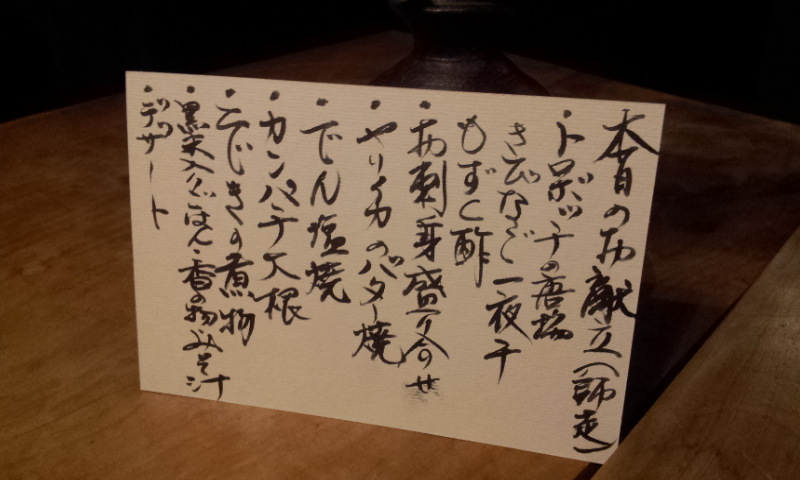 本日のお献立(師走)
・トロボッチの唐揚
きびなご一夜干
もずく酢
・お刺身盛り合わせ
・ヤリイカのバター焼
・でん塩焼
・カンパチ大根
・こじきの煮物
・黒米入りごはん・香の物・みそ汁
・デザート